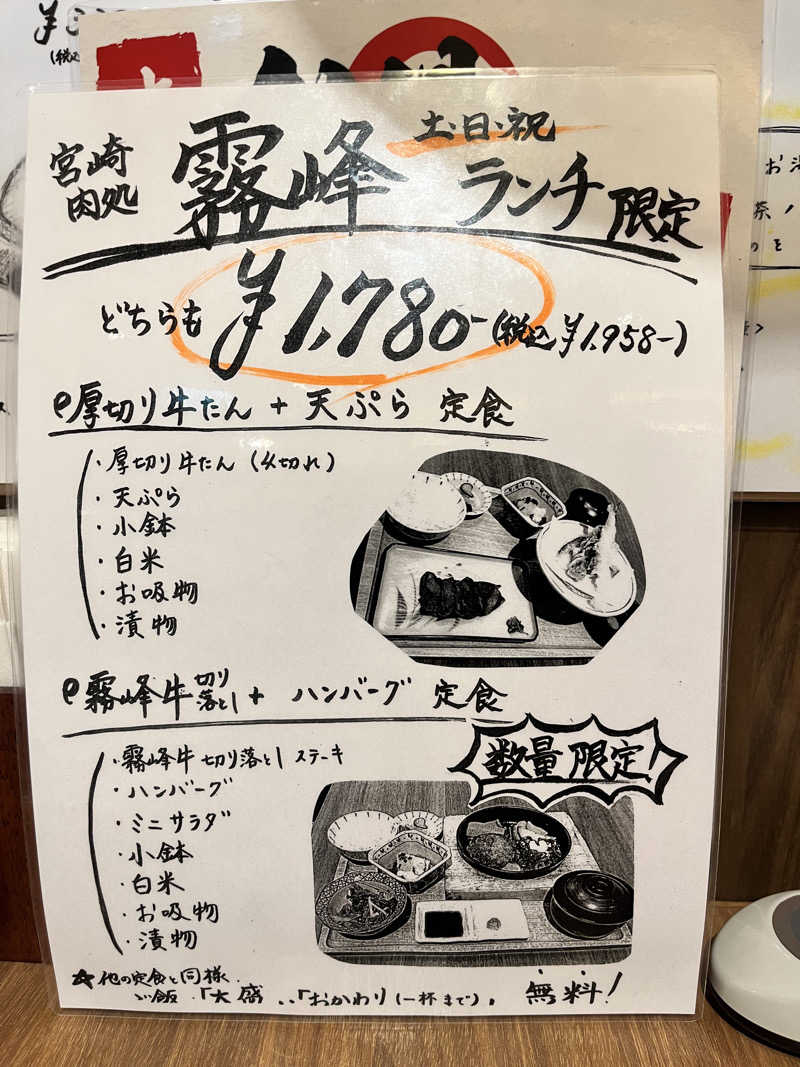 宮崎
肉処
霧峰
土・日・祝
ランチ限定
どちらも ¥1,780- (税込¥1,958-)
厚切り牛たん + 天ぷら 定食
・厚切り牛たん (4切れ)
・天ぷら
・小鉢
・白米
・お吸物
・漬物
霧峰牛切り落とし + ハンバーグ 定食
数量限定!
・霧峰牛 切り落とし ステーキ
・ハンバーグ
・ミニサラダ
・小鉢
・白米
・お吸物
・漬物
☆他の定食と同様、
ご飯、「大盛」、「おかわり(一杯まで)」 無料!